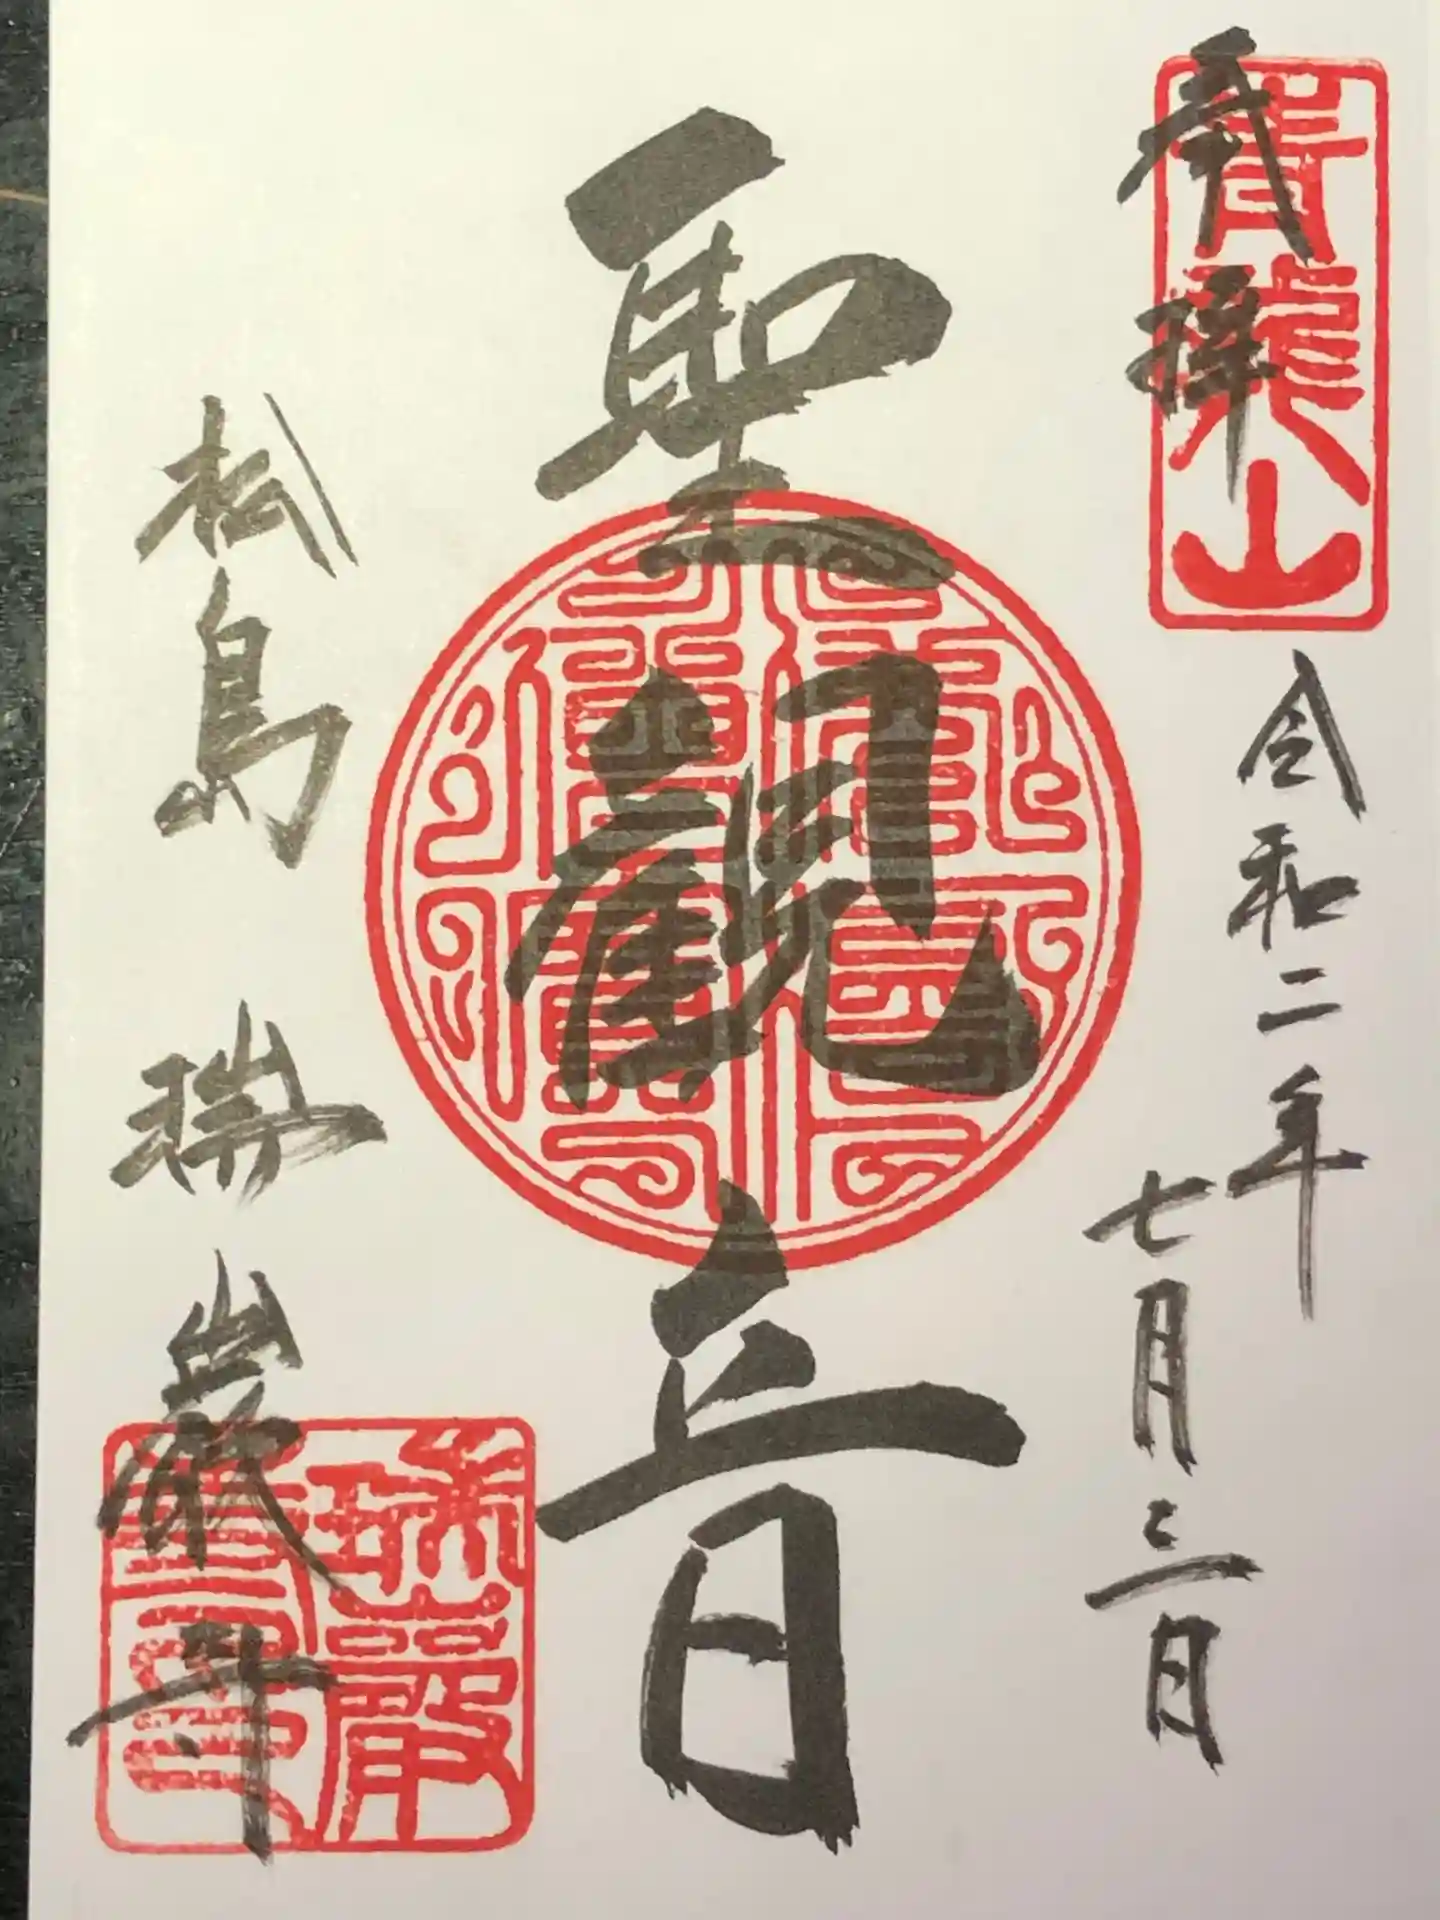 奉拝
青龍山
令和二年
七月三日
聖観音
松島
瑞巌寺
瑞巌